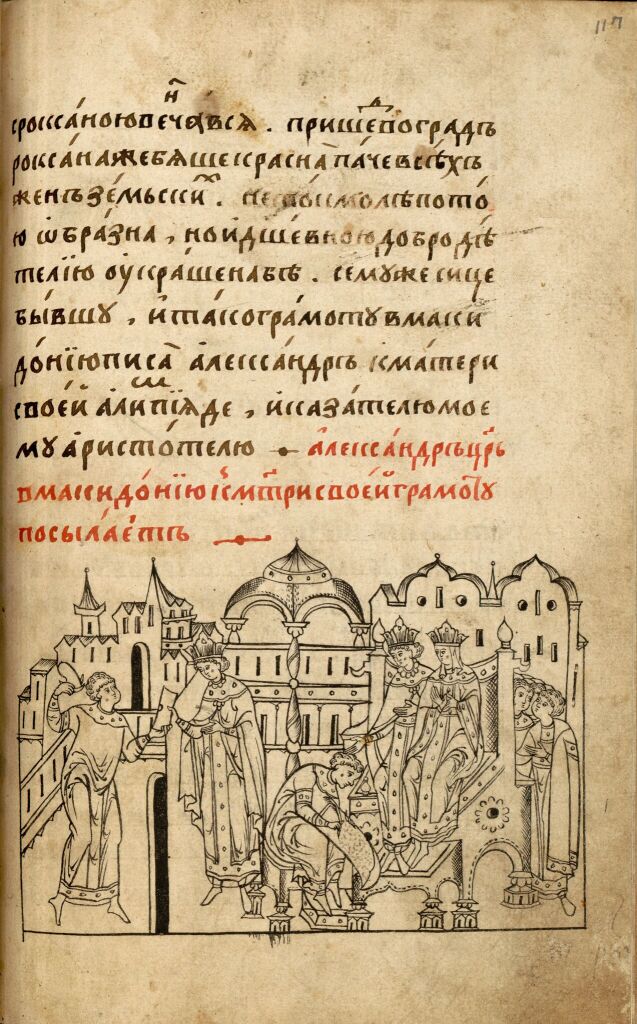 117
сроѯаною вѣнчавсѧ . пришеⷣ во градъ
роѯана же бѧше красна паче всѣхъ
женъ земьски
ю ѡбразна , но и дшевною добродѣ
телїю оукрашена бѣ . семуже сице
бывшу , и такo грамоту вмаки
донїю писа александръ кматери
своей алипїѧде , и казателю мое
му аристотелю — александръ црь
вмакидонїю кмтри своей грамоту
посылаетъ